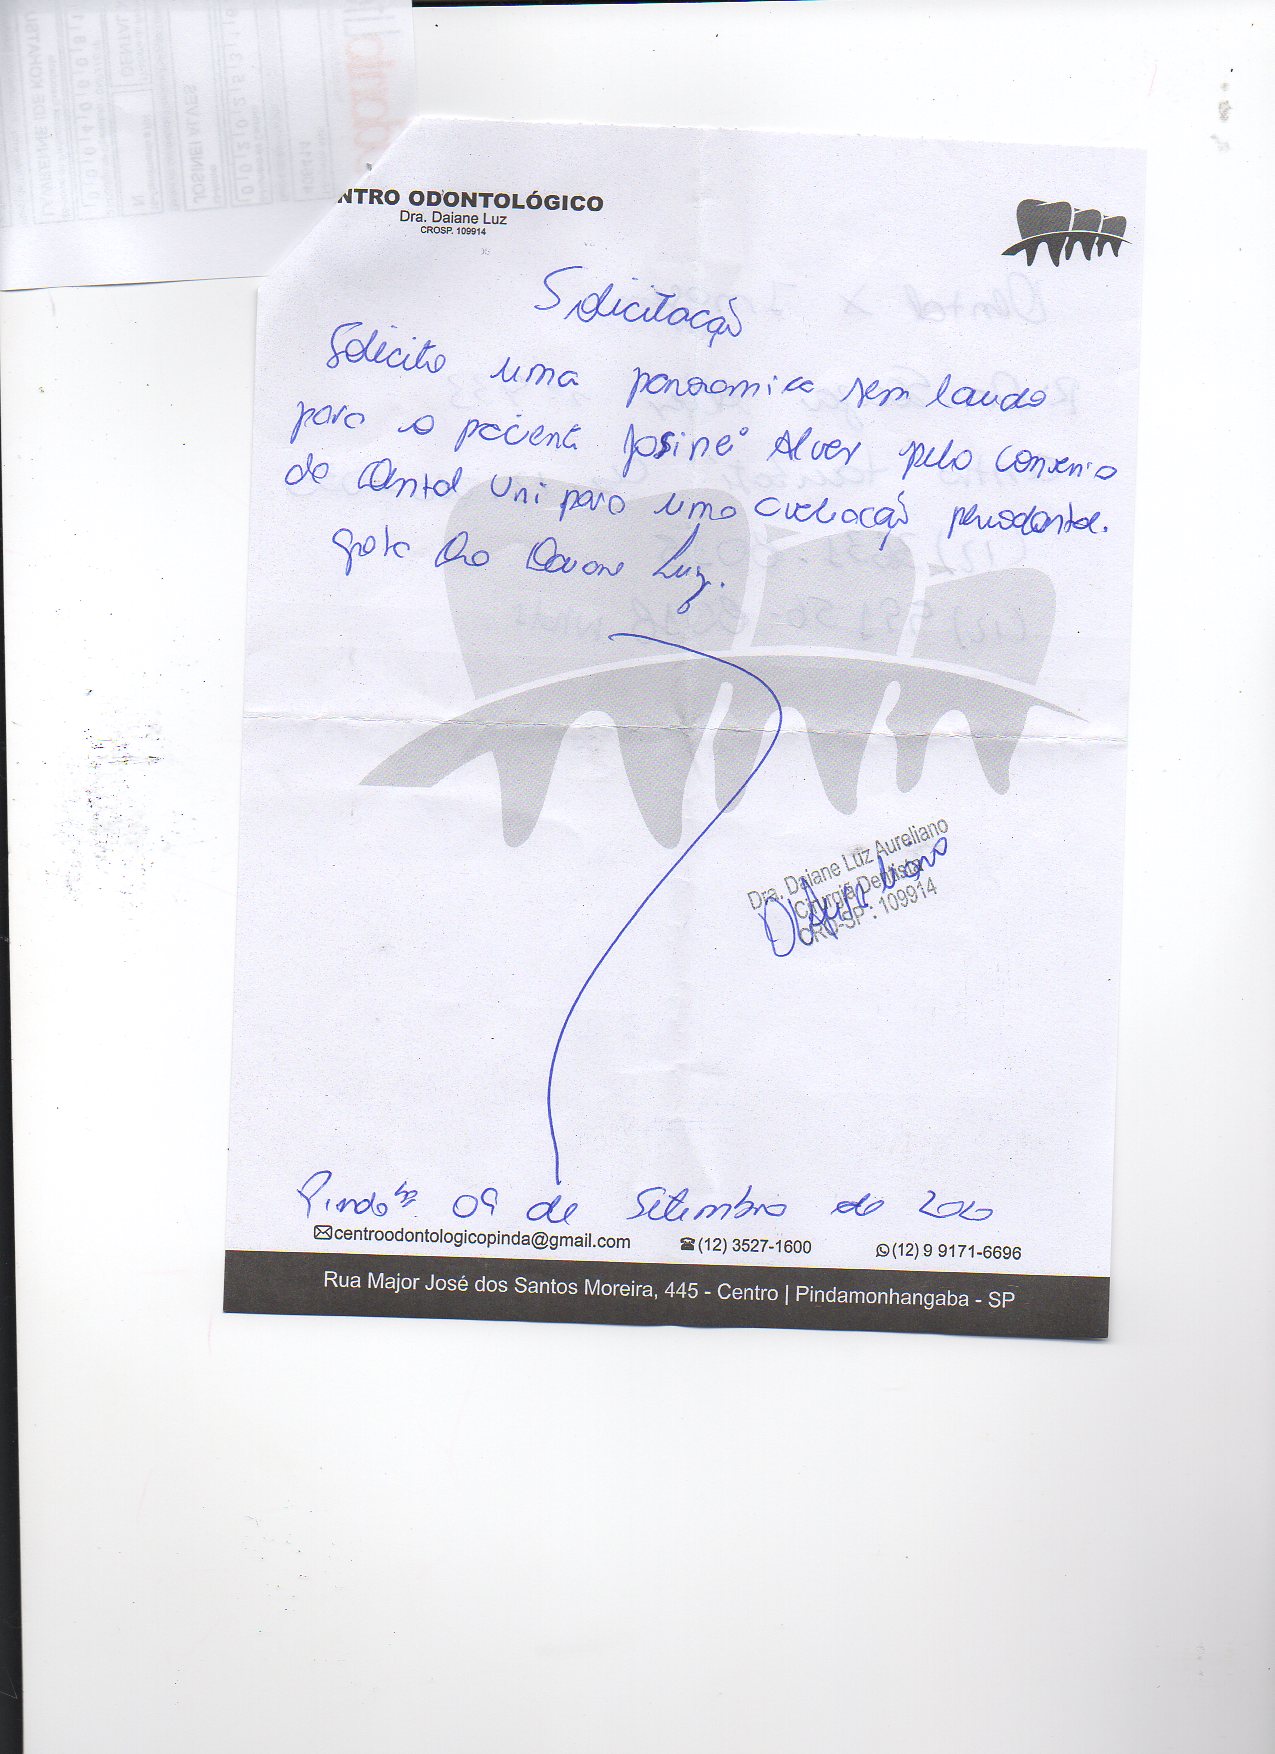 NTRO ODONTOLÓGICO
Dra. Daiane Luz
CROSP. 109914
Solicitação
Solicito uma panoramica sem laudo
para o paciente Josinei Alves pelo convenio
da Dental Uni para uma avaliação periodontal.
grata Dra Daiane Luz.
Dra. Daiane Luz Aureliano
Cirurgiã Dentista
CRO-SP : 109914
Pinda 09 de Setembro de 2020
centroodontologicopinda@gmail.com (12) 3527-1600 (12) 9 9171-6696
Rua Major José dos Santos Moreira, 445 - Centro | Pindamonhangaba - SP
JOSINEI ALVES